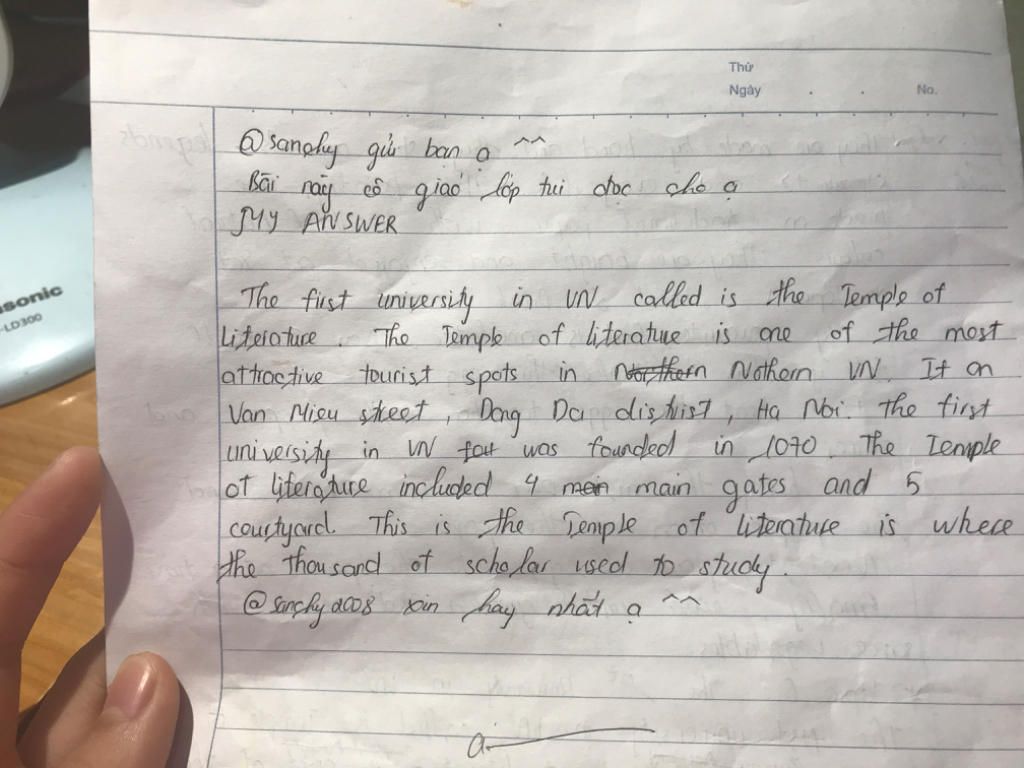 Thứ
Ngày . . No.
@sanchy gửi bạn ạ ^^
Bài này cô giáo lớp tui đọc cho ạ
MY ANSWER
The first university in VN called is the Temple of
literature. The Temple of literature is one of the most
attractive tourist spots in Northern Nothern VN. It on
Van Mieu street, Dong Da district, Ha Noi. The first
university in VN was founded in 1070. The Temple
of literature included 4 main main gates and 5
courtyard. This is the Temple of literature is where
the thousand of scholar used to study.
@sanchy2008 xin hay nhất ạ ^^
asonic
-LD300